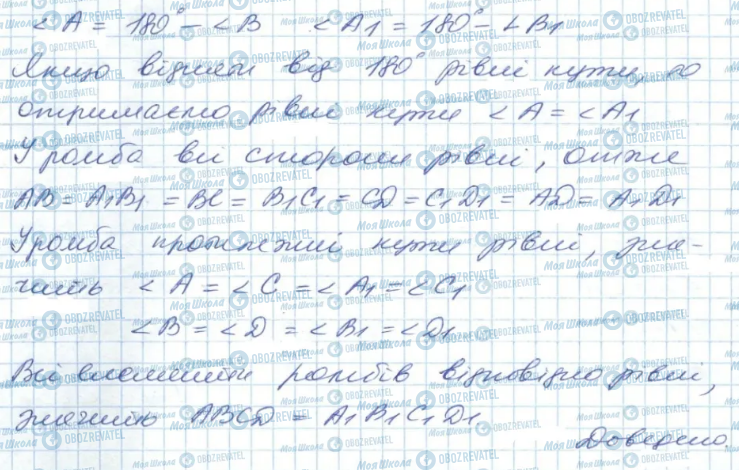 ∠A = 180° – ∠B ∠A1 = 180° – ∠B1
Якщо відняти від 180° рівні кути, то
отримаємо рівні кути ∠A = ∠A1
У ромба всі сторони рівні, отже
AB = A1B1 = BC = B1C1 = CD = C1D1 = AD = A1D1
У ромба протилежні кути рівні, зна-
чить ∠A = ∠C = ∠A1 = ∠C1
∠B = ∠D = ∠B1 = ∠D1
Всі елементи ромбів відповідно рівні,
значить ABCD = A1B1C1D1
Доведено.